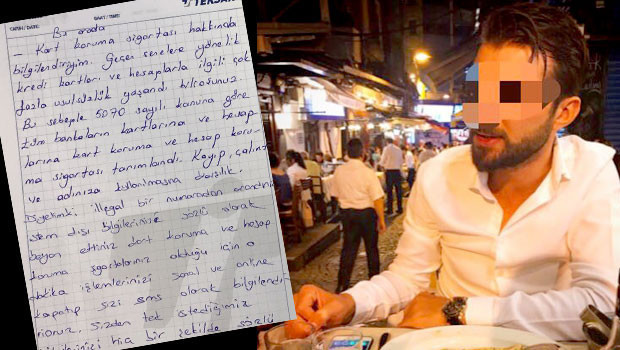 TEKSAN
TARİH / DATE:
SAAT / TIME:
Bu arada
- Kart koruma sigortası hakkında
bilgilendireyim. Geçen senelere yönelik
kredi kartları ve hesaplarla ilgili çok
fazla usulsüzlük yaşandı biliyorsunuz.
Bu sebeple 5070 sayılı kanuna göre
tüm bankaların kartlarına ve hesap
larına kart koruma ve hesap koru-
ma sigortası tanımlandı. Kayıp, çalıntı
ve adınıza kullanılmasına karşılık.
illegal bir numaradan arandınız
dışı bilgilerinizi sözlü olarak
beyan ettiniz kart koruma ve hesap
koruma sigortalarınız olduğu için o
dakika işlemlerinizi sanal ve online
kapatıp sizi sms olarak bilgilendi
riyoruz. Sizden tek istediğimiz
bilgilerinizi hiç bir şekilde sözlü